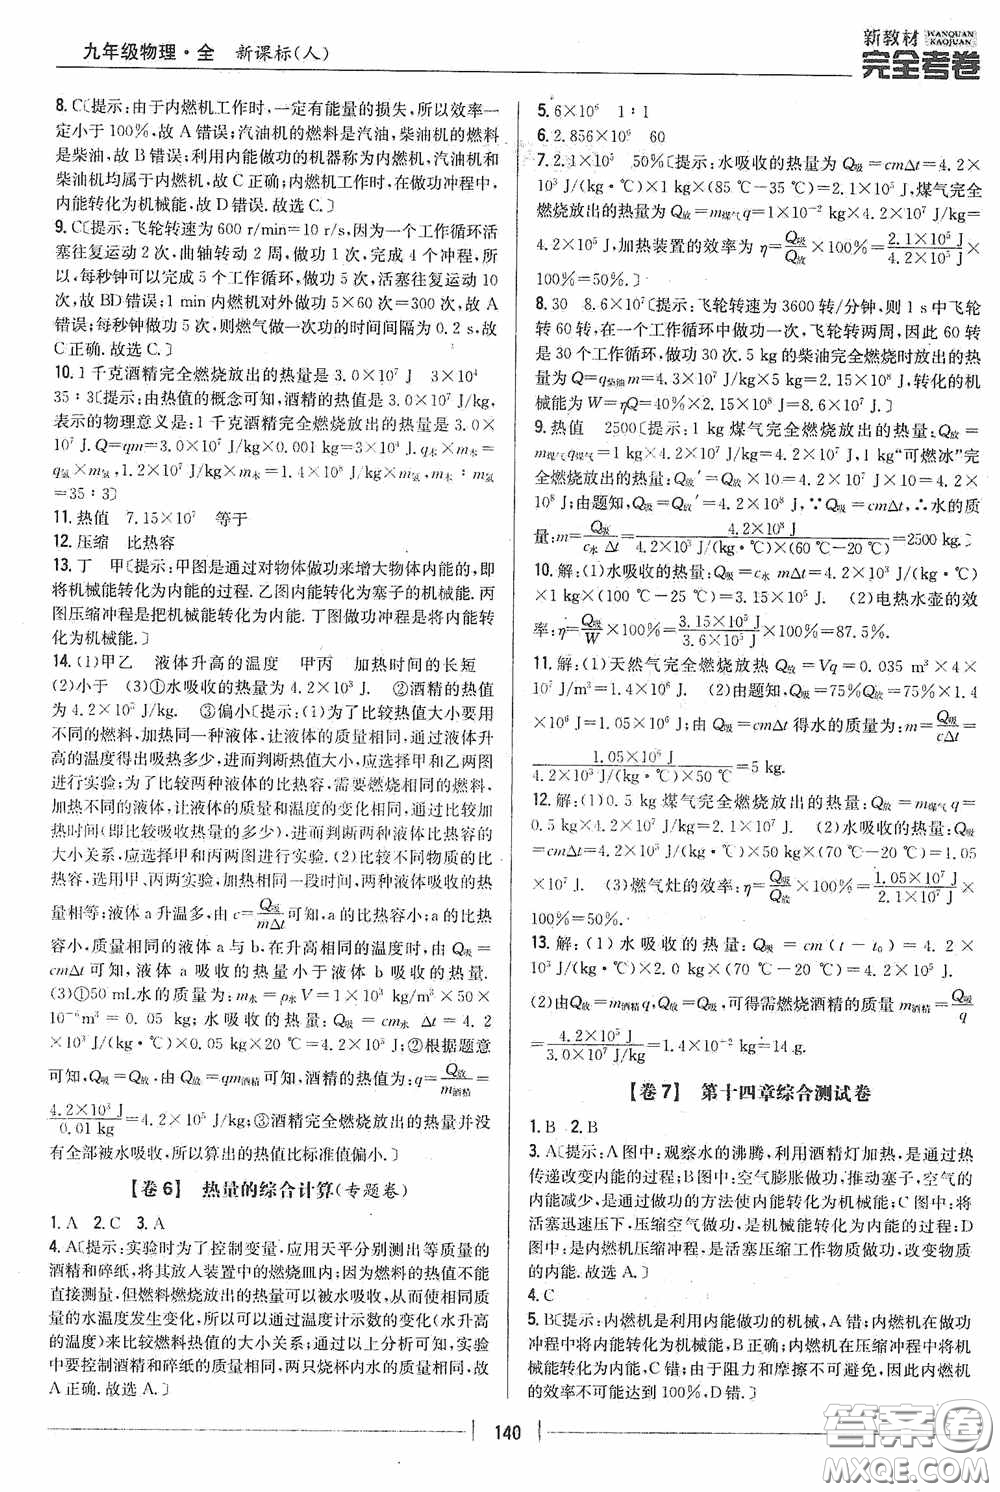 九年级物理·全 新课标(人)
新教材 WANQUAN KAOJUAN
完全考卷
8. C〔提示:由于内燃机工作时,一定有能量的损失,所以效率一
定小于100%,故 A 错误;汽油机的燃料是汽油,柴油机的燃料
是柴油,故 B 错误;利用内能做功的机器称为内燃机,汽油机和
柴油机均属于内燃机,故 C 正确;内燃机工作时,在做功冲程中,
内能转化为机械能,故 D 错误.故选 C.〕
9. C〔提示:飞轮转速为 600 r/min=10 r/s,因为一个工作循环活
塞往复运动 2 次,曲轴转动 2 周,做功 1 次,完成 4 个冲程.所
以,每秒钟可以完成 5 个工作循环,做功 5 次,活塞往复运动 10
次,故 BD 错误;1 min 内燃机对外做功 5×60 次=300 次,故 A
错误;每秒钟做功 5 次,则燃气做一次功的时间间隔为 0.2 s,故
C 正确.故选 C.〕
10. 1 千克酒精完全燃烧放出的热量是 3.0×10⁷ J 3×10⁴
35∶3〔提示:由热值的概念可知,酒精的热值是 3.0×10⁷ J/kg,
表示的物理意义是:1 千克酒精完全燃烧放出的热量为 3.0×
10⁷ J.Q=qm=3.0×10⁷ J/kg×0.001 kg=3×10⁴ J.q木×m木=
q氢×m氢,1.2×10⁷ J/kg×m木=1.4×10⁸ J/kg×m氢,m木∶m氢
=35∶3〕
11. 热值 7.15×10⁷ 等于
12. 压缩 比热容
13. 丁 甲〔提示:甲图是通过对物体做功来增大物体内能的,即
将机械能转化为内能的过程.乙图内能转化为塞子的机械能.丙
图压缩冲程是把机械能转化为内能.丁图做功冲程是将内能转
化为机械能.〕
14. (1)甲乙 液体升高的温度 甲丙 加热时间的长短
(2)小于 (3)①水吸收的热量为 4.2×10³ J ②酒精的热值
为 4.2×10⁵ J/kg. ③偏小〔提示:(1)为了比较热值大小要用
不同的燃料,加热同一种液体,让液体的质量相同,通过液体升
高的温度得出吸热多少,进而判断热值大小,应选择甲和乙两图
进行实验;为了比较两种液体的比热容,需要燃烧相同的燃料,
加热不同的液体,让液体的质量和温度的变化相同,通过比较加
热时间(即比较吸收热量的多少),进而判断两种液体比热容的
大小关系,应选择甲和丙两图进行实验.(2)比较不同物质的比
热容,选用甲、丙两实验,加热相同一段时间,两种液体吸收的热
量相等;液体 a 升温多,由 c=Q吸/mΔt可知,a 的比热容小;a 的比热
容小,质量相同的液体 a 与 b,在升高相同的温度时,由 Q吸
=cmΔt 可知,液体 a 吸收的热量小于液体 b 吸收的热量.
(3)①50 mL水的质量为:m水=ρ水V=1×10³ kg/m³×50×
10⁻⁶m³=0.05 kg;水吸收的热量:Q吸=cm水 Δt=4.2
×10³ J/(kg·℃)×0.05 kg×20 ℃=4.2×10³ J;②根据题意
可知,Q吸=Q放.由 Q放=qm酒精可知,酒精的热值为:q=Q放/m酒精=
4.2×10³ J/0.01 kg=4.2×10⁵ J/kg;③酒精完全燃烧放出的热量并没
有全部被水吸收,所以算出的热值比标准值偏小.〕
【卷 6】 热量的综合计算(专题卷)
1. A 2. C 3. A
4. A〔提示:实验时为了控制变量,应用天平分别测出等质量的
的酒精和碎纸,将其放入装置中的燃烧皿内;因为燃料的热值不能
直接测量,但燃料燃烧放出的热量可以被水吸收,从而使相同质
量的水温度发生变化,所以可以通过温度计示数的变化(水升高
的温度)来比较燃料热值的大小关系;通过以上分析可知,实验
中要控制酒精和碎纸的质量相同,两只烧杯内水的质量相同.故
A 正确.故选 A.〕
5. 6×10⁶ 1∶1
6. 2.856×10⁶ 60
7. 2.1×10⁵ 50%〔提示:水吸收的热量为 Q吸=cmΔt=4.2×
10³ J/(kg·℃)×1 kg×(85 ℃-35 ℃)=2.1×10⁵ J,煤气完全
燃烧放出的热量为 Q放=m煤气q=1×10⁻² kg×4.2×10⁷ J/kg
=4.2×10⁵ J,加热装置的效率为 η=Q吸/Q放×100%=2.1×10⁵ J/4.2×10⁵ J×
100%=50%.〕
8. 30 8.6×10⁷〔提示:飞轮转速为 3600 转/分钟,则 1 s 中飞轮
转 60 转,在一个工作循环中做功一次,飞轮转两周,因此 60 转
是 30 个循环,做功 30 次.5 kg 的柴油完全燃烧时放出的热
量为 Q=q柴油m=4.3×10⁷ J/kg×5 kg=2.15×10⁸ J,转化的机
械能为 W=ηQ=40%×2.15×10⁸ J=8.6×10⁷ J.〕
9. 热值 2500〔提示:1 kg 煤气完全燃烧放出的热量:Q放=
m煤气q煤气=1 kg×4.2×10⁷ J/kg=4.2×10⁷ J,1 kg“可燃冰”完
全燃烧放出的热量:Q放′=Q放×10=4.2×10⁷ J×10=4.2×
10⁸ J;由题知,Q吸=Q放′=4.2×10⁸ J,∵Q吸=cmΔt,∴水的质
量:m=Q吸/c水 Δt=4.2×10⁸ J/4.2×10³ J/(kg·℃)×(60 ℃-20 ℃)=2500 kg.〕
10. 解:(1)水吸收的热量:Q吸=c水 mΔt=4.2×10³ J/(kg·℃)
×1 kg×(100 ℃-25 ℃)=3.15×10⁵ J. (2)电热水壶的效
率:η=Q吸/W×100%=3.15×10⁵ J/3.6×10⁵ J×100%=87.5%.
11. 解:(1)天然气完全燃烧放热 Q放=Vq=0.035 m³×4×
10⁷ J/m³=1.4×10⁶ J. (2)由题知,Q吸=75%Q放=75%×1.4
×10⁶ J=1.05×10⁶ J;由 Q吸=cmΔt 得水的质量为:m=Q吸/cΔt=
1.05×10⁶ J/4.2×10³ J/(kg·℃)×50 ℃=5 kg.
12. 解:(1)0.5 kg 煤气完全燃烧放出的热量:Q放=m煤气q=
0.5 kg×4.2×10⁷ J/kg=2.1×10⁷ J. (2)水吸收的热量:Q吸=
cmΔt=4.2×10³ J/(kg·℃)×50 kg×(70 ℃-20 ℃)=1.05
×10⁷ J. (3)燃气灶的效率:η=Q吸/Q放×100%=1.05×10⁷ J/2.1×10⁷ J×
100%=50%.
13. 解:(1)水吸收的热量:Q吸=cm(t-t₀)=4.2×
10³ J/(kg·℃)×2 kg×(70 ℃-20 ℃)=4.2×10⁵ J.
(2)由Q放=m酒精q,Q吸=Q放,可得需燃烧酒精的质量 m酒精=Q吸/q
=4.2×10⁵ J/3.0×10⁷ J/kg=1.4×10⁻² kg=14 g.
【卷 7】 第十四章综合测试卷
1. B 2. B
3. A〔提示:A 图中:观察水的沸腾,利用酒精灯加热,是通过热
传递改变内能的过程;B 图中:空气膨胀做功,推动塞子,空气的
内能减少,是通过做功的方法使内能转化为机械能;C 图中,将
活塞迅速压下,压缩空气做功,是机械能转化为内能的过程;D
图中:是内燃机压缩冲程,是活塞压缩工作物质做功,改变物质
的内能.故选 A.〕
4. C
5. B〔提示:内燃机是利用内能做功的机械,A 错;内燃机在做功
冲程中将内能转化为机械能,B 正确;内燃机在压缩冲程中,把
机械能转化为内能,C 错;由于阻力和摩擦不可避免,因此内燃机
的效率不可能达到 100%,D 错.〕
140
答案卷
MXQE.COM